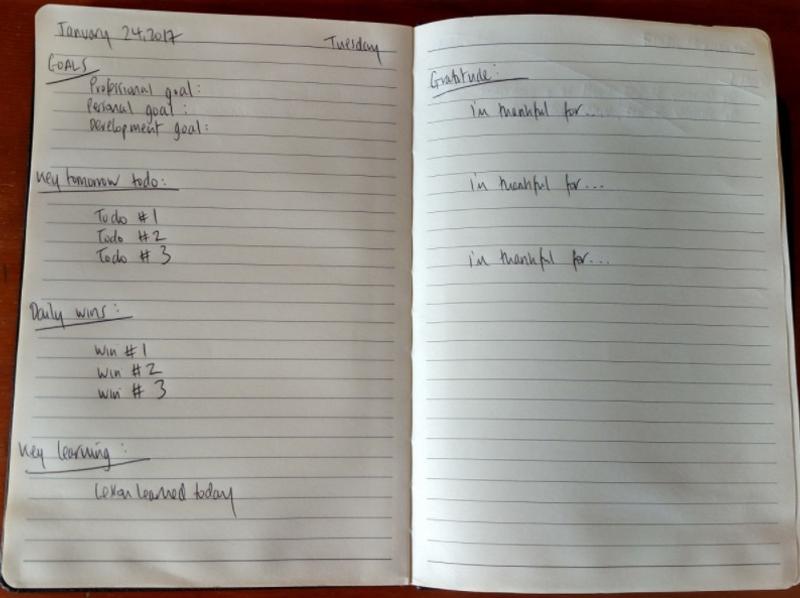 January 24, 2017
Tuesday
GOALS
Professional goal:
Personal goal :
Development goal:
Key tomorrow todo:
Todo #1
Todo #2
Todo # 3
Daily wins:
Win #1
Win #2
Win # 3
Key learning:
Lesson learned today
Gratitude:
i'm thankful for...
i'm thankful for...
i'm thankful for...